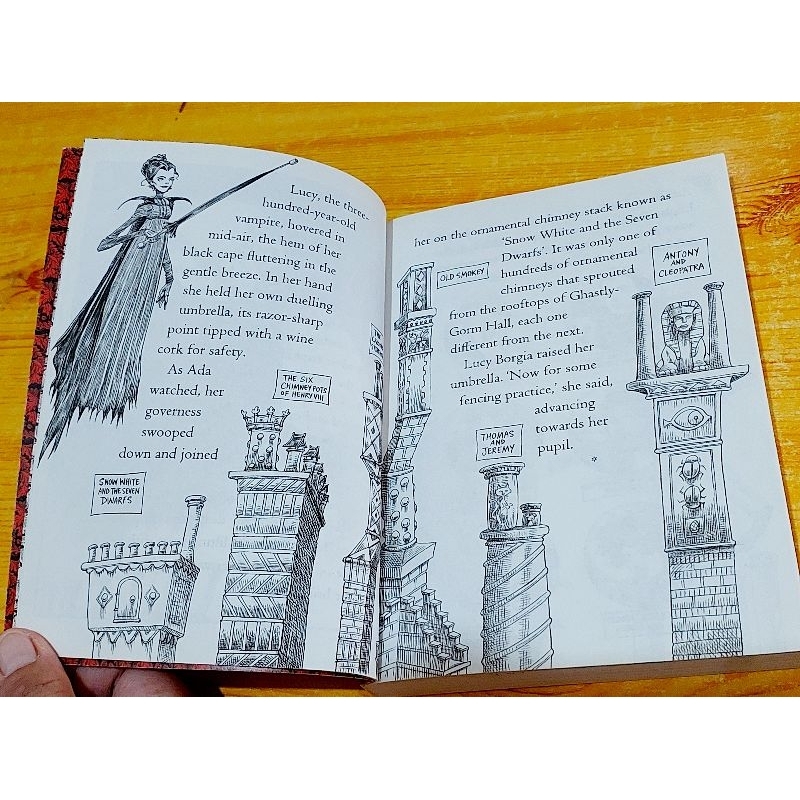 Lucy, the three-
hundred-year-old
vampire, hovered in
mid-air, the hem of her
black cape fluttering in the
gentle breeze. In her hand
she held her own duelling
umbrella, its razor-sharp
point tipped with a wine
cork for safety.
As Ada
watched, her
governess
swooped
down and joined
THE SIX
CHIMNEY POTS
OF HENRY VIII
SNOW WHITE
AND THE SEVEN
DWARFS
her on the ornamental chimney stack known as
‘Snow White and the Seven
Dwarfs’. It was only one of
hundreds of ornamental
chimneys that sprouted
from the rooftops of Ghastly-
Gorm Hall, each one
different from the next.
Lucy Borgia raised her
umbrella. ‘Now for some
fencing practice,’ she said,
advancing
towards her
pupil.
*
OLD SMOKEY
ANTONY
AND
CLEOPATRA
THOMAS
AND
JEREMY